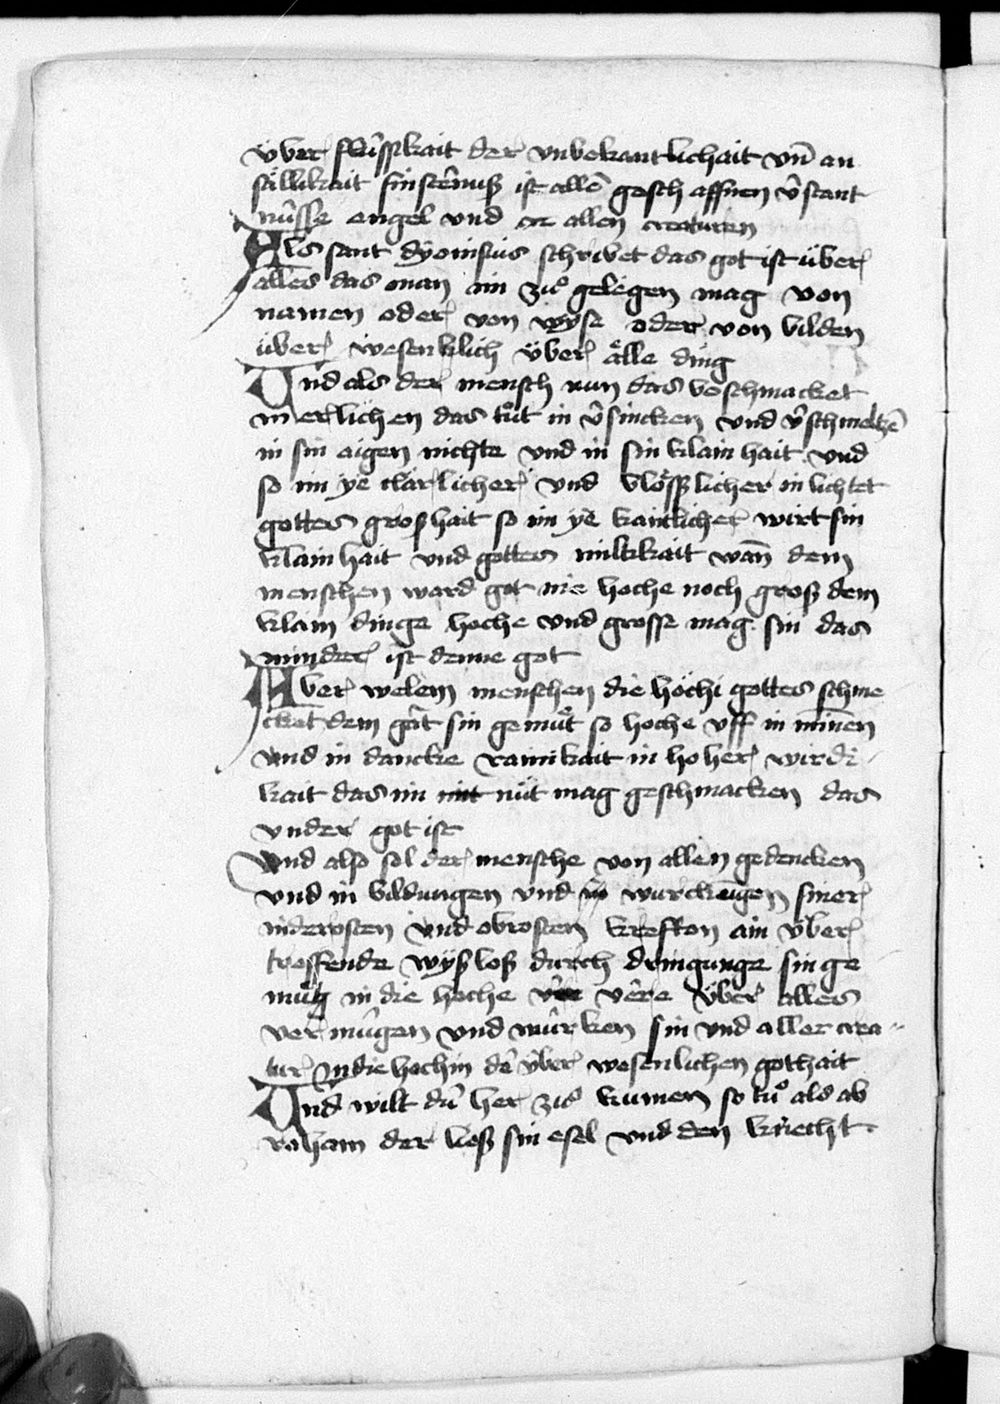 über flüssikait der vnbekantlichait vn̄ an
sällikait finsternuß ist allē gesch affnen v̂stant
nüsse engel vnd or allen creaturen
Als sant dyonisius schribet das got ist über
alles das man im zuͦ gelegen mag von
namen oder von wyse oder von bilden
über wesenklich über älle ding
Vnd als der mensch nun das beschmacket
in erlichen das tuͦt in v̂sincken vnd v̂schmeltzē
in sin aigen nichte vnd in sin klain hait vnd
so im ye clärlicher vnd blößlicher in lichtet
gottes groshait so im ye kantlicher wirt sin
klain hait vnd gottes miltkait wan̄ dem
menschen ward got nie hoche noch groß dem
klain dinge hoche vnd grosse mag sin das
minder ist denne got
Aber welem menschen die höchi gottes schme
cket dem gat sin gemuͤt so hoche vff in minnen
vnd in dancke rainikait in hoher wirdi
kait das im nüt mag geschmacken das
vnder got ist
Vnd also sol der mensche von allen gedencken
vnd in bildungen vnd in wurckungen siner
niderosten vnd obrosten krefften ain über
treffende wyß loß durch dringunge sin ge
muͤtz in die hoche v̂re über alles
vermügen vnd würken sin vnd aller crea
tur in die hochin dē über wesenlichen gothait
Vnd wilt dü her zuͦ kumen so tuͦ als ab
raham der ließ sin esel vnd den knecht